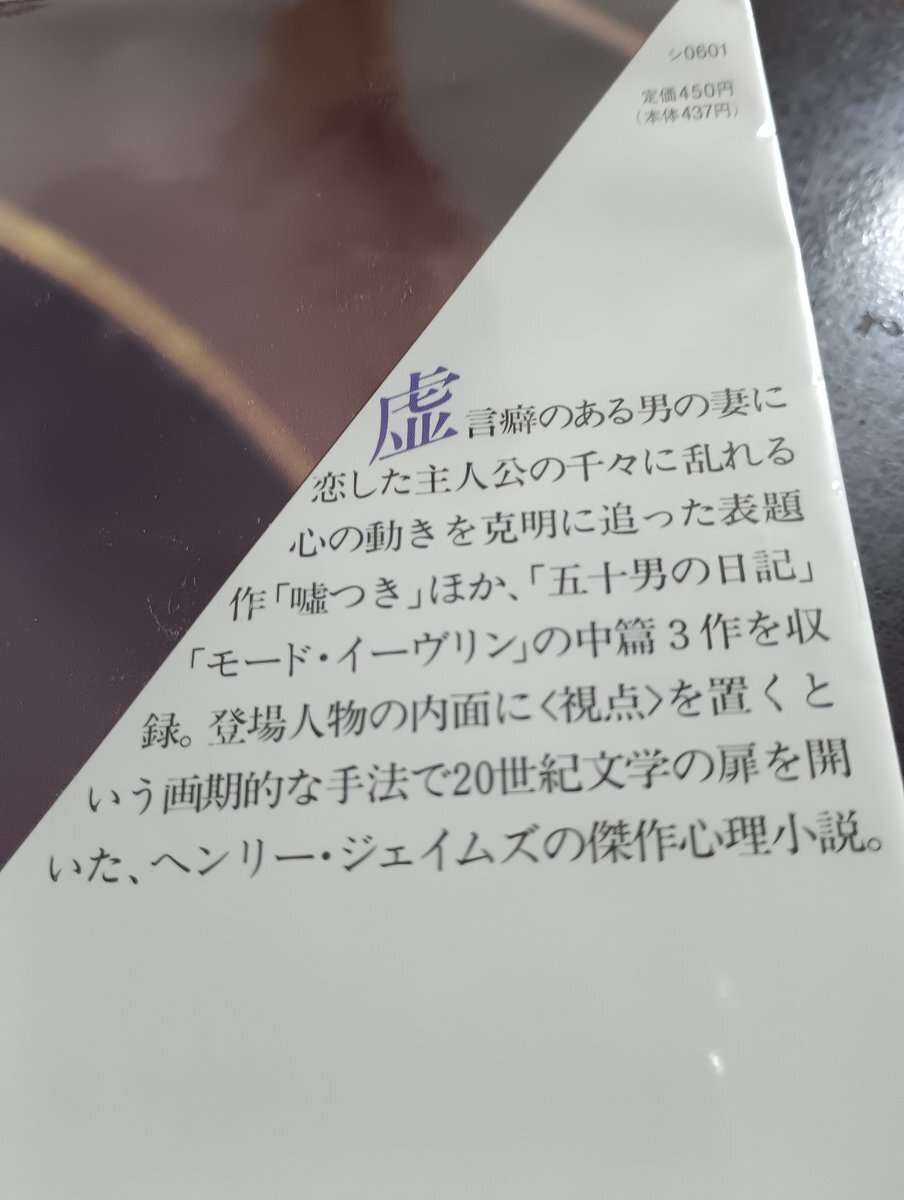 シ0601
定価450円
（本体437円）
虚言癖のある男の妻に
恋した主人公の千々に乱れる
心の動きを克明に追った表題
作「嘘つき」ほか、「五十男の日記」
「モード・イーヴリン」の中篇3作を収
録。登場人物の内面に〈視点〉を置くと
いう画期的な手法で20世紀文学の扉を開
いた、ヘンリー・ジェイムズの傑作心理小説。